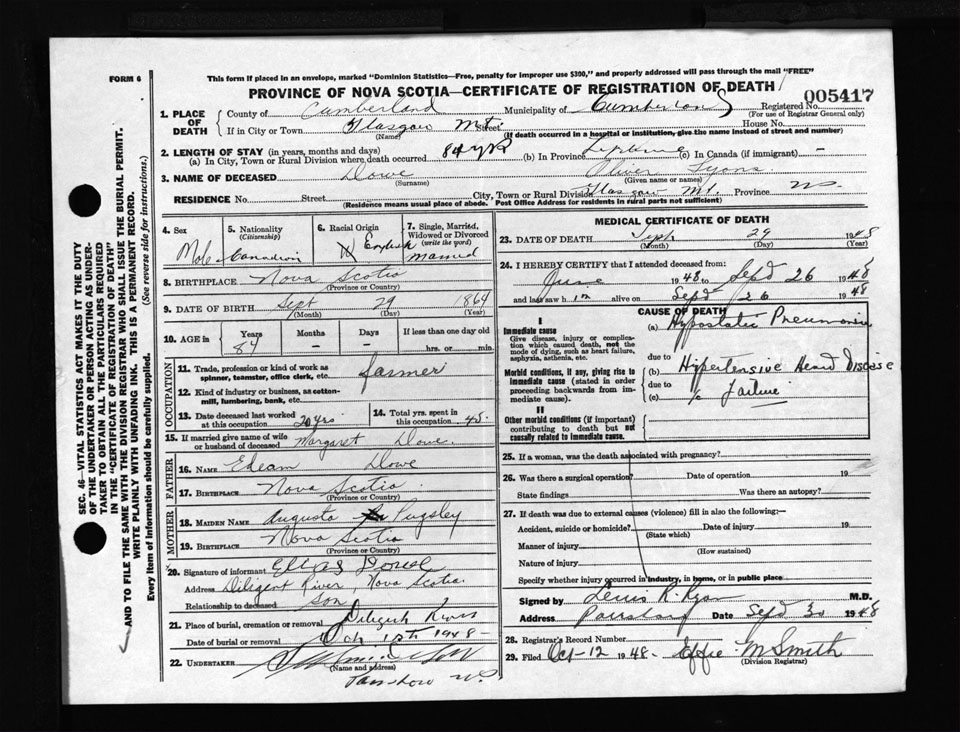 FORM 6
This form if placed in an envelope, marked "Dominion Statistics—Free, penalty for improper use $300," and properly addressed will pass through the mail "FREE"
PROVINCE OF NOVA SCOTIA—CERTIFICATE OF REGISTRATION OF DEATH
005417
1. PLACE OF DEATH
County of Cumberland Municipality of Cumberland Registered No.
(For use of Registrar General only)
If in City or Town Glasgow Mt. Street House No.
(Name) (If death occurred in a hospital or institution, give the name instead of street and number)
2. LENGTH OF STAY (in years, months and days)
(a) In City, Town or Rural Division where death occurred 84 yrs (b) In Province Lifetime (c) In Canada (if immigrant) —
3. NAME OF DECEASED Dowe Oliver Lyons
(Surname) (Given name or names)
RESIDENCE No. Street City, Town or Rural Division Glasgow Mt. Province NS
(Residence means usual place of abode. Post Office Address for residents in rural parts not sufficient)
4. Sex Male
5. Nationality (Citizenship) Canadian
6. Racial Origin W English
7. Single, Married, Widowed or Divorced (write the word) Married
8. BIRTHPLACE Nova Scotia
(Province or Country)
9. DATE OF BIRTH Sept 29 1864
(Month) (Day) (Year)
10. AGE in Years Months Days If less than one day old
84 — — hrs. or min.
OCCUPATION
11. Trade, profession or kind of work as spinner, teamster, office clerk, etc. farmer
12. Kind of industry or business, as cotton-mill, lumbering, bank, etc.
13. Date deceased last worked at this occupation 20 yrs
14. Total yrs. spent in this occupation 45
15. If married give name of wife or husband of deceased Margaret Dowe
FATHER
16. NAME Dowe
17. BIRTHPLACE Nova Scotia
(Province or Country)
MOTHER
18. MAIDEN NAME Augusta Pugsley
19. BIRTHPLACE Nova Scotia
(Province or Country)
20. Signature of informant Dowe
Address Diligent River, Nova Scotia
Relationship to deceased Son
21. Place of burial, cremation or removal Diligent River
Date of burial or removal Oct 1st 1948
22. UNDERTAKER
(Name and address)
MEDICAL CERTIFICATE OF DEATH
23. DATE OF DEATH Sept 29 1948
(Month) (Day) (Year)
24. I HEREBY CERTIFY that I attended deceased from
June 1948 to Sept 26 1948
and last saw him alive on Sept 26 1948
CAUSE OF DEATH
I
Immediate cause
Give disease, injury or complication which caused death, not the mode of dying, such as heart failure, asphyxia, asthenia, etc.
(a) Hypostatic Pneumonia
due to
Morbid conditions, if any, giving rise to immediate cause (stated in order proceeding backwards from immediate cause).
(b) Hypertensive Heart Disease
due to
(c) failure
II
Other morbid conditions (if important) contributing to death but not causally related to immediate cause.
25. If a woman, was the death associated with pregnancy?
26. Was there a surgical operation? Date of operation 19
State findings Was there an autopsy?
27. If death was due to external causes (violence) fill in also the following:—
Accident, suicide or homicide? Date of injury 19
(State which)
Manner of injury
(How sustained)
Nature of injury
Specify whether injury occurred in industry, in home, or in public place
Signed by Lewis R. Ryan M.D.
Address Parrsboro Date Sept 30 1948
28. Registrar's Record Number
29. Filed Oct-12 1948 Effie M Smith
(Division Registrar)
SEC. 46—VITAL STATISTICS ACT MAKES IT THE DUTY
OF THE UNDERTAKER OR PERSON ACTING AS UNDER-
TAKER TO OBTAIN ALL THE PARTICULARS REQUIRED
IN THE "CERTIFICATE OF REGISTRATION OF DEATH"
AND TO FILE THE SAME WITH THE DIVISION REGISTRAR WHO SHALL ISSUE THE BURIAL PERMIT.
WRITE PLAINLY WITH UNFADING INK. THIS IS A PERMANENT RECORD.
Every item of information should be carefully supplied. (See reverse side for instructions.)